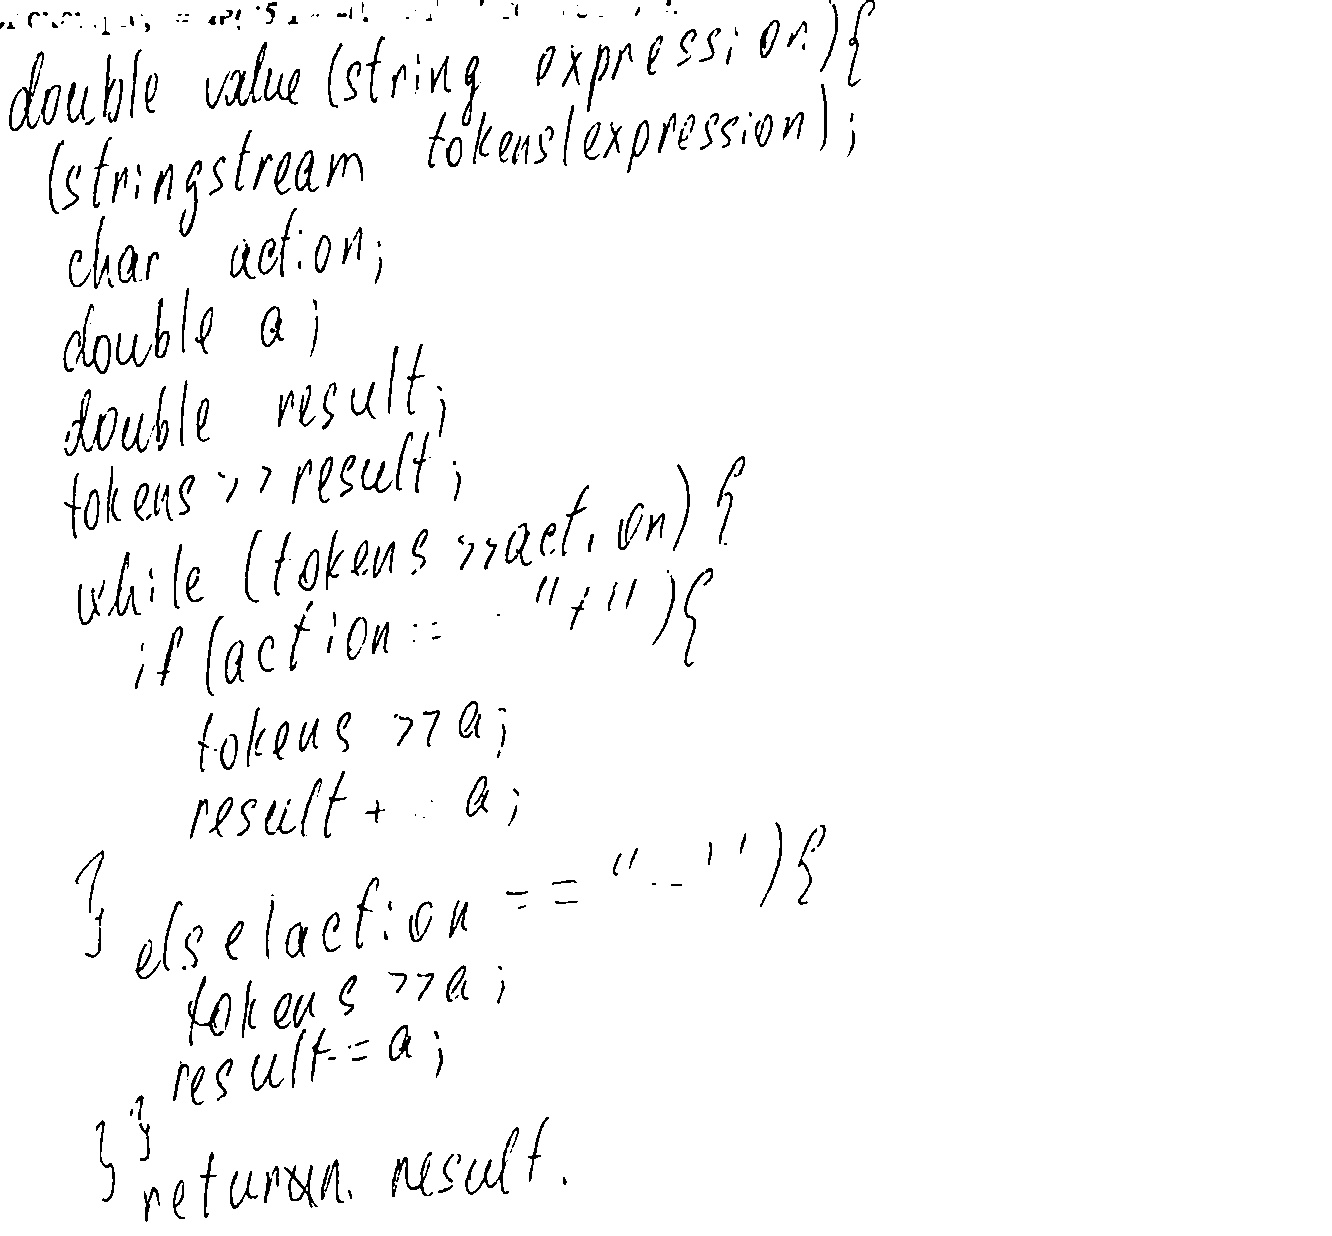 double value (string expression){
(stringstream tokens(expression);
char action;
double a;
double result;
tokens >> result;
while (tokens >> action) {
if (action == "+"){
tokens >> a;
result + = a;
}
else(action == "-"){
tokens >> a;
result -= a;
}
} return result.